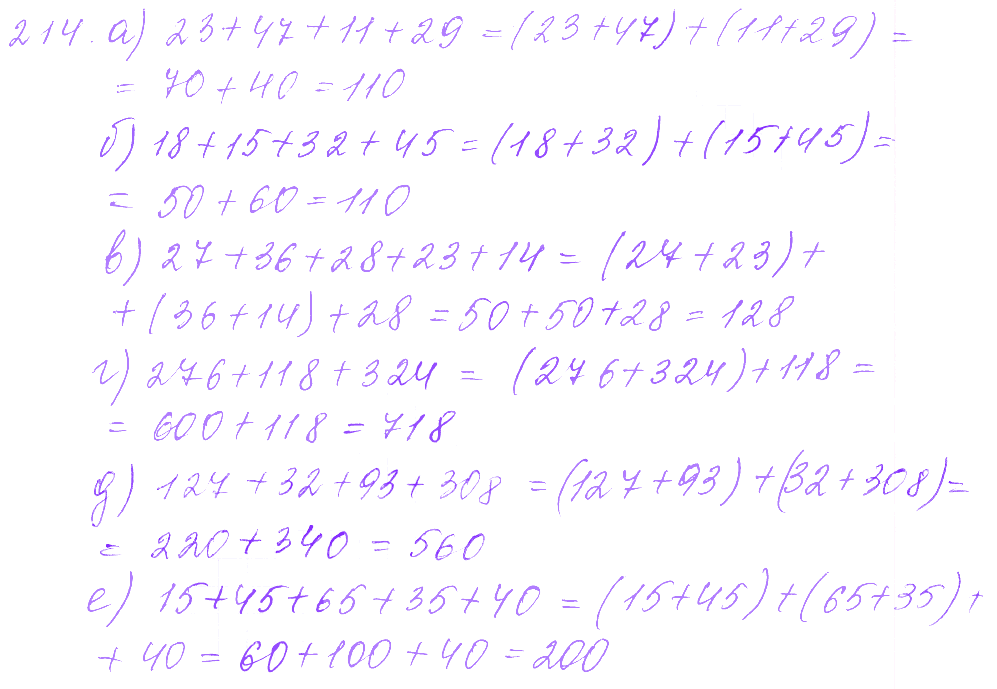 214. а) 23+47+11+29 = (23+47)+(11+29) =
= 70+40 = 110
б) 18+15+32+45 = (18+32)+(15+45) =
= 50+60 = 110
в) 27+36+28+23+14 = (27+23)+
+(36+14)+28 = 50+50+28 = 128
г) 276+118+324 = (276+324)+118 =
= 600+118 = 718
д) 127+32+93+308 = (127+93)+(32+308) =
= 220+340 = 560
е) 15+45+65+35+40 = (15+45)+(65+35)+
+40 = 60+100+40 = 200